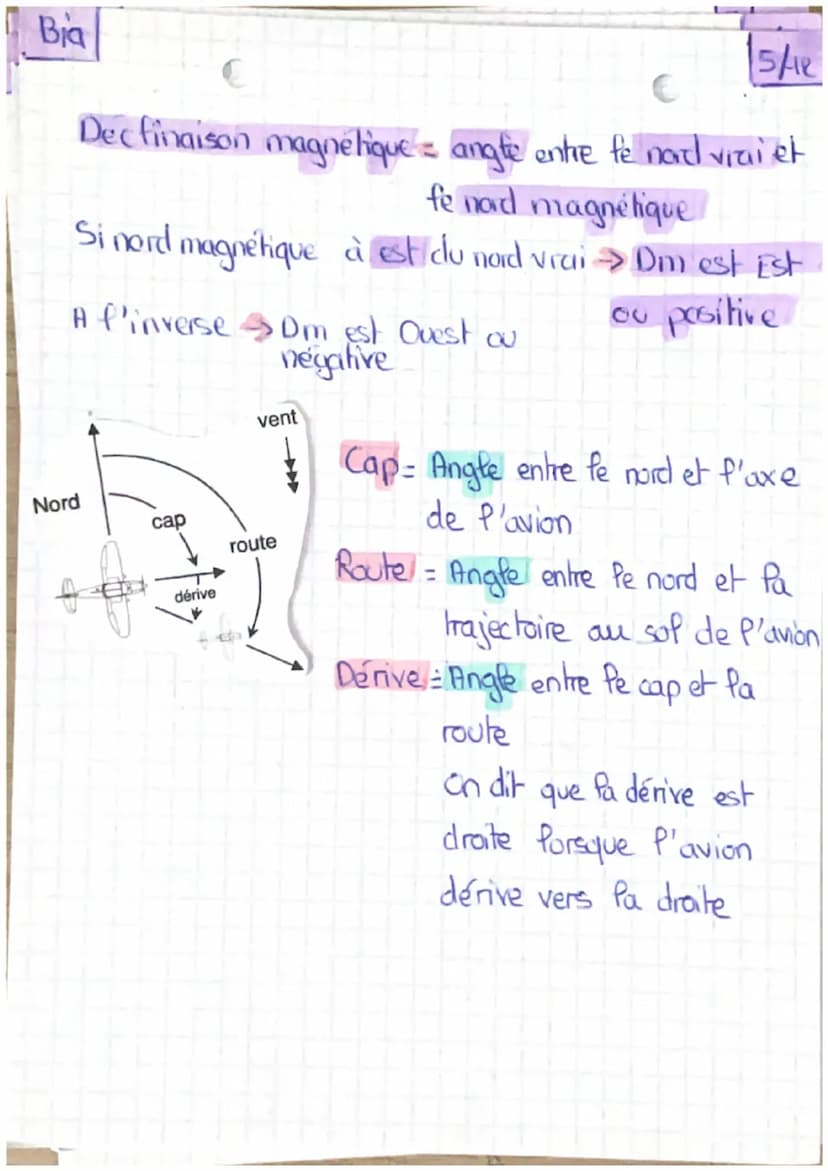 Bia
5/12
Déclinaison magnétique = angle entre le nord vrai et
le nord magnétique
Si nord magnétique à est du nord vrai → Dm est Est
ou positive
A l'inverse → Dm est Ouest ou
négative
vent
Nord
cap
route
dérive
Cap = Angle entre le nord et l'axe
de l'avion
Route = Angle entre le nord et la
trajectoire au sol de l'avion
Dérive = Angle entre le cap et la
route
On dit que la dérive est
droite lorsque l'avion
dérive vers la droite